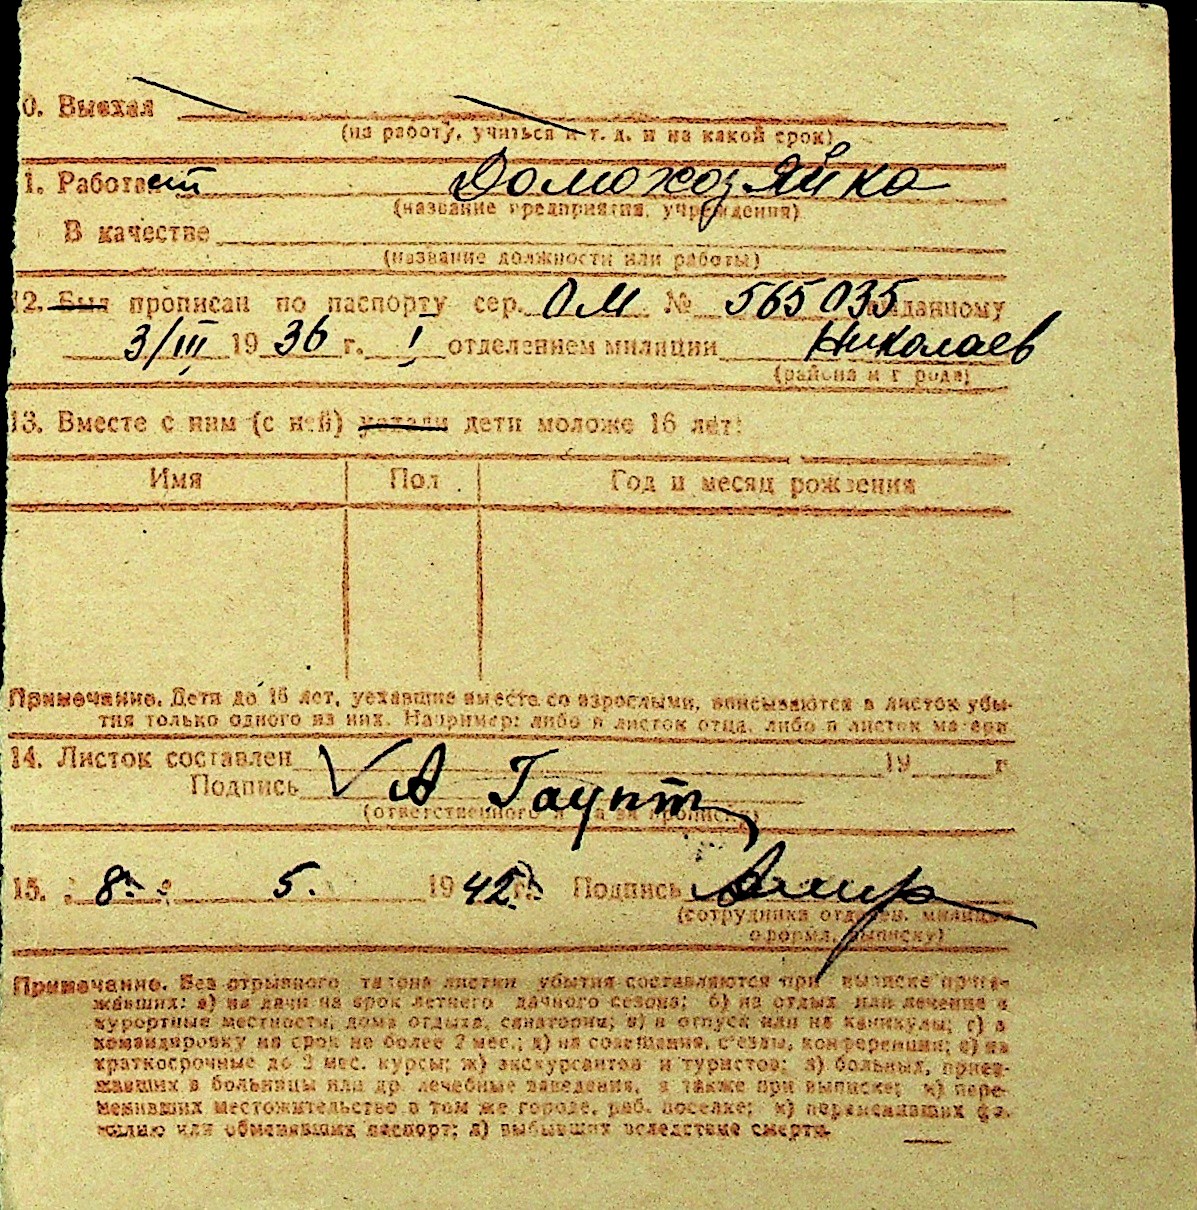 0. Выехал
(на работу, учиться и т. д. и на какой срок)
1. Работает Домохозяйка
(название предприятия, учреждения)
В качестве
(название должности или работы)
12. Был прописан по паспорту сер. ОМ № 565035 выданному
3/III 1936 г. I отделением милиции Николаев
(района и города)
13. Вместе с ним (с ней) уехали дети моложе 16 лет:
Имя Пол Год и месяц рождения
Примечание. Дети до 16 лет, уехавшие вместе со взрослыми, вписываются в листок убы-
тия только одного из них. Например: либо в листок отца, либо в листок матери
14. Листок составлен 19 г
Подпись А Гаупт
(ответственного лица за прописку)
15. 8 5. 1942 г. Подпись
(сотрудника отделен. милиции
оформл. выписку)
Примечание. Без отрывного талона листки убытия составляются при выписке приез-
жавших: а) на дачи на срок летнего дачного сезона; б) на отдых или лечение в
курортные местности, дома отдыха, санатории; в) в отпуск или на каникулы; г) в
командировку на срок не более 2 мес.; д) на совещания, с'езды, конференции; е) на
краткосрочные до 3 мес. курсы; ж) экскурсантов и туристов; з) больных, приез-
жавших в больницы или др. лечебные заведения, а также при выписке; и) пере-
менивших местожительство в том же городе, раб. поселке; к) переменивших фа-
милию или обменявших паспорт; л) выбывших вследствие смерти.